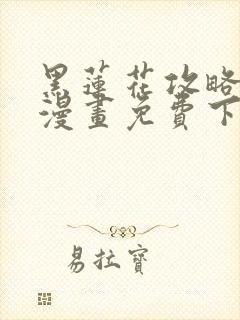 黑蓮花攻略
漫畫免費下
易拉寶